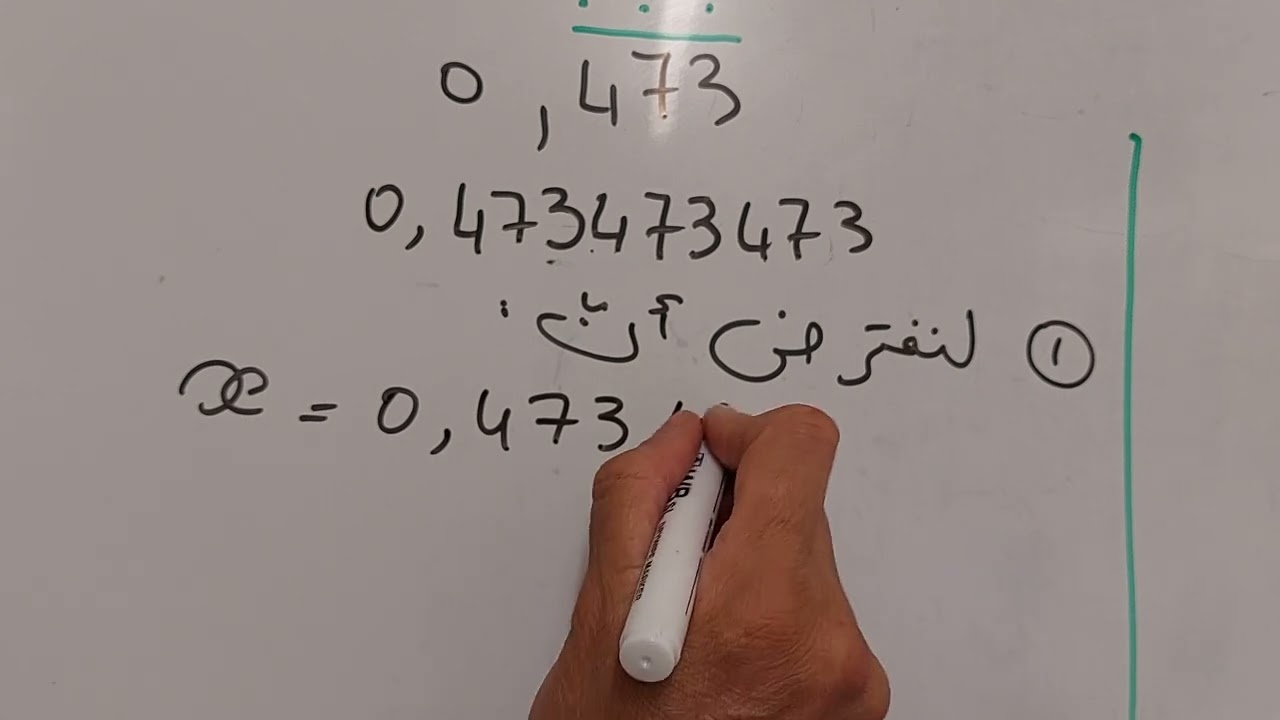 0,473
0,473473473
① لنفترض أنّ :
x = 0,473